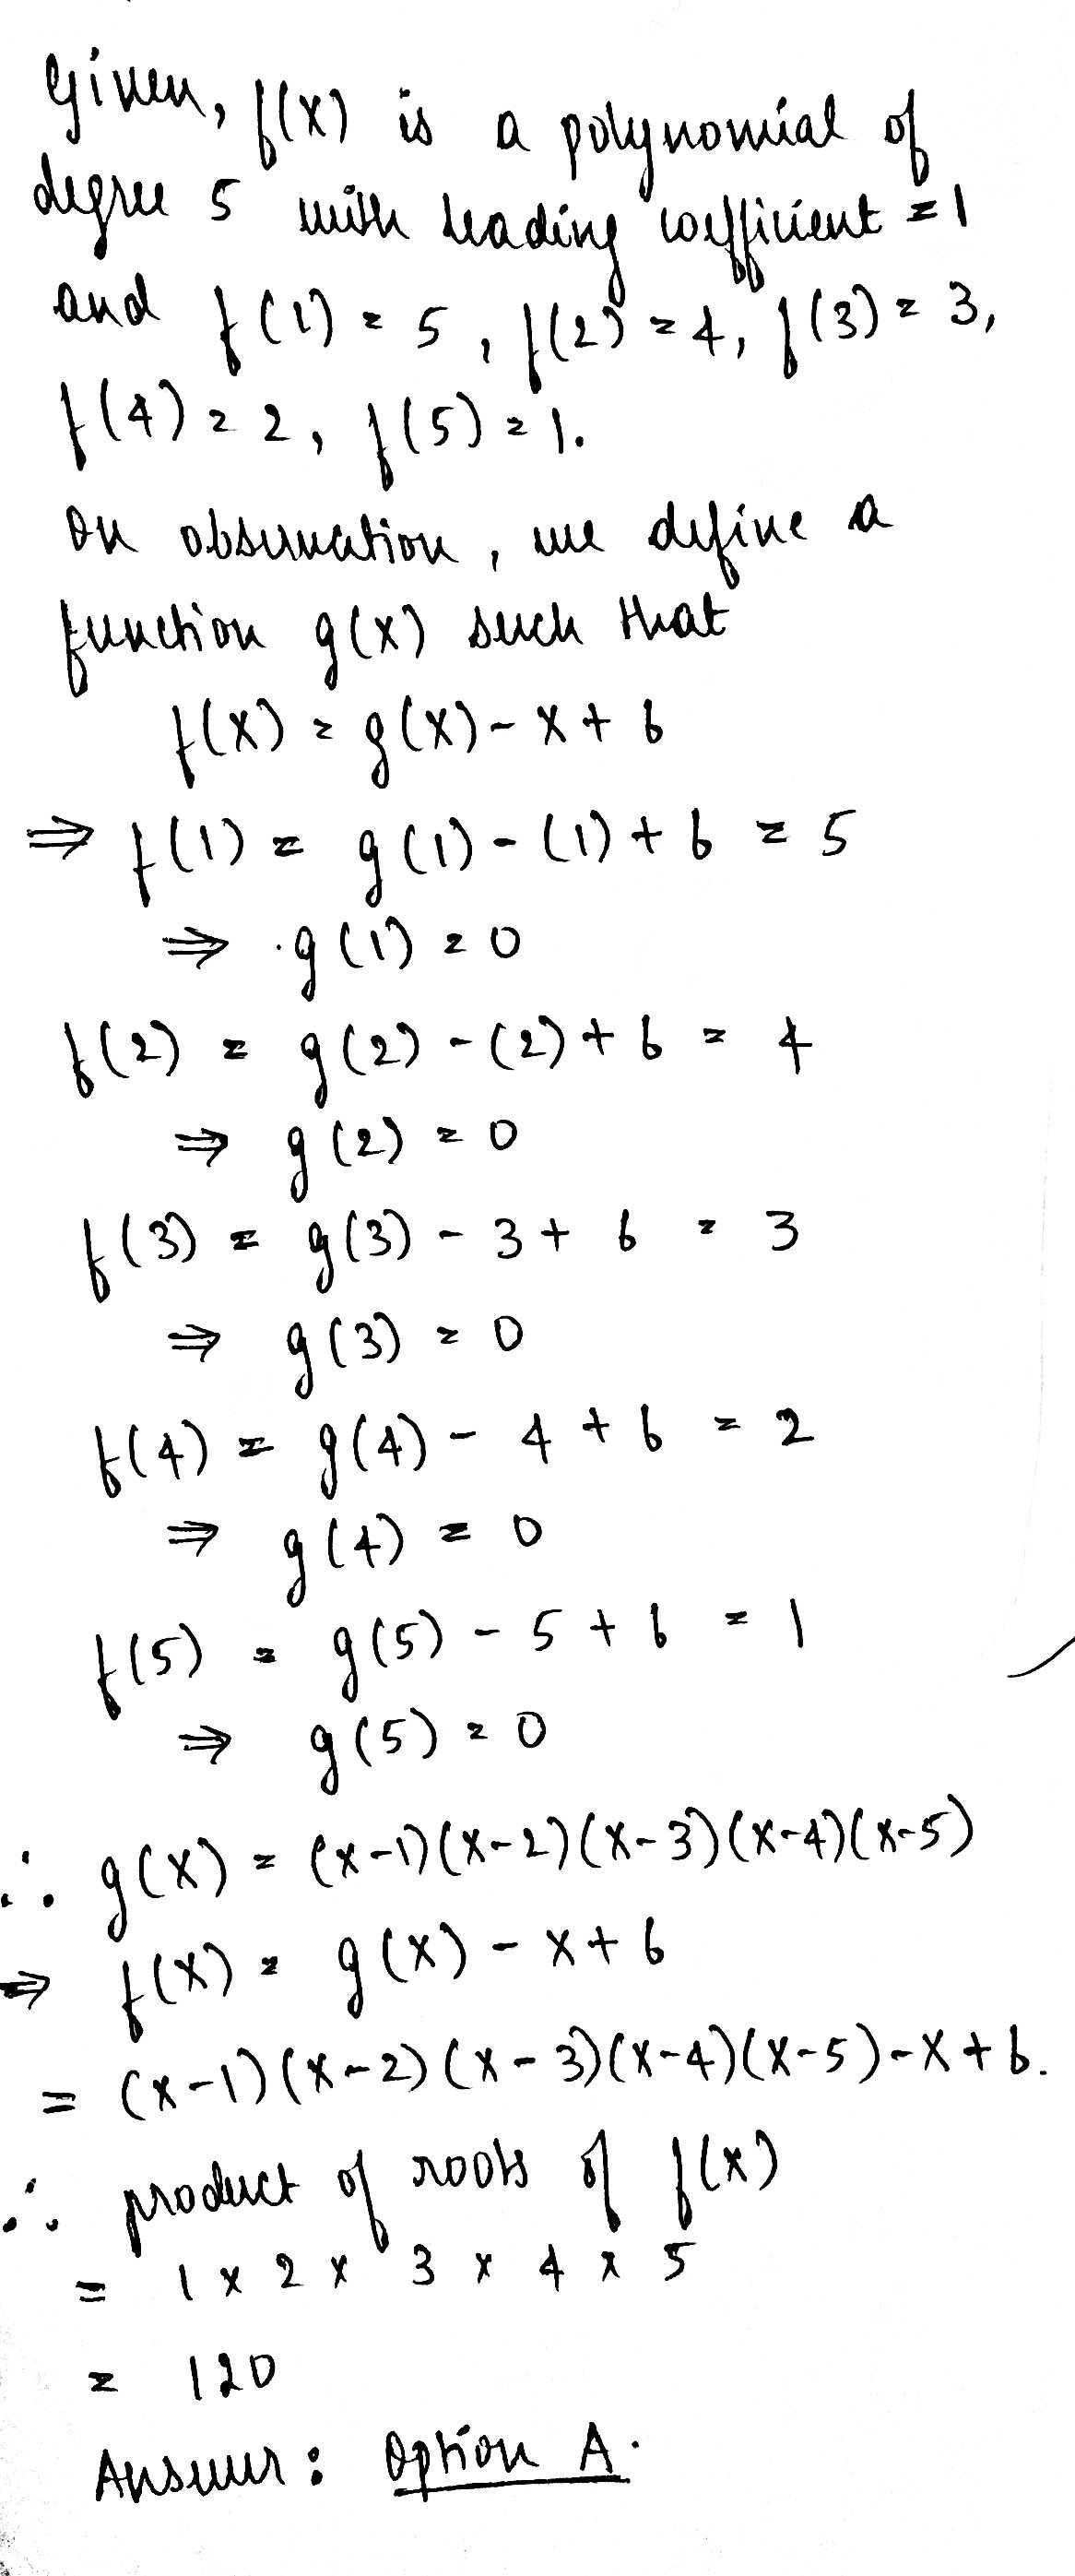 Given, f(x) is a polynomial of
degree 5 with leading coefficient = 1
and f(1) = 5, f(2) = 4, f(3) = 3,
f(4) = 2, f(5) = 1.
On observation, we define a
function g(x) such that
f(x) = g(x) - x + 6
⇒ f(1) = g(1) - (1) + 6 = 5
⇒ g(1) = 0
f(2) = g(2) - (2) + 6 = 4
⇒ g(2) = 0
f(3) = g(3) - 3 + 6 = 3
⇒ g(3) = 0
f(4) = g(4) - 4 + 6 = 2
⇒ g(4) = 0
f(5) = g(5) - 5 + 6 = 1
⇒ g(5) = 0
∴ g(x) = (x-1)(x-2)(x-3)(x-4)(x-5)
⇒ f(x) = g(x) - x + 6
= (x-1)(x-2)(x-3)(x-4)(x-5) - x + 6.
∴ product of roots of f(x)
= 1 x 2 x 3 x 4 x 5
= 120
Answer: Option A.